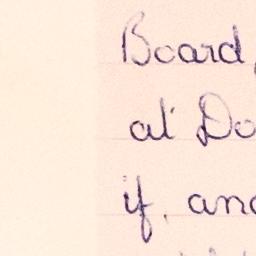 Board,
at Do
if, and